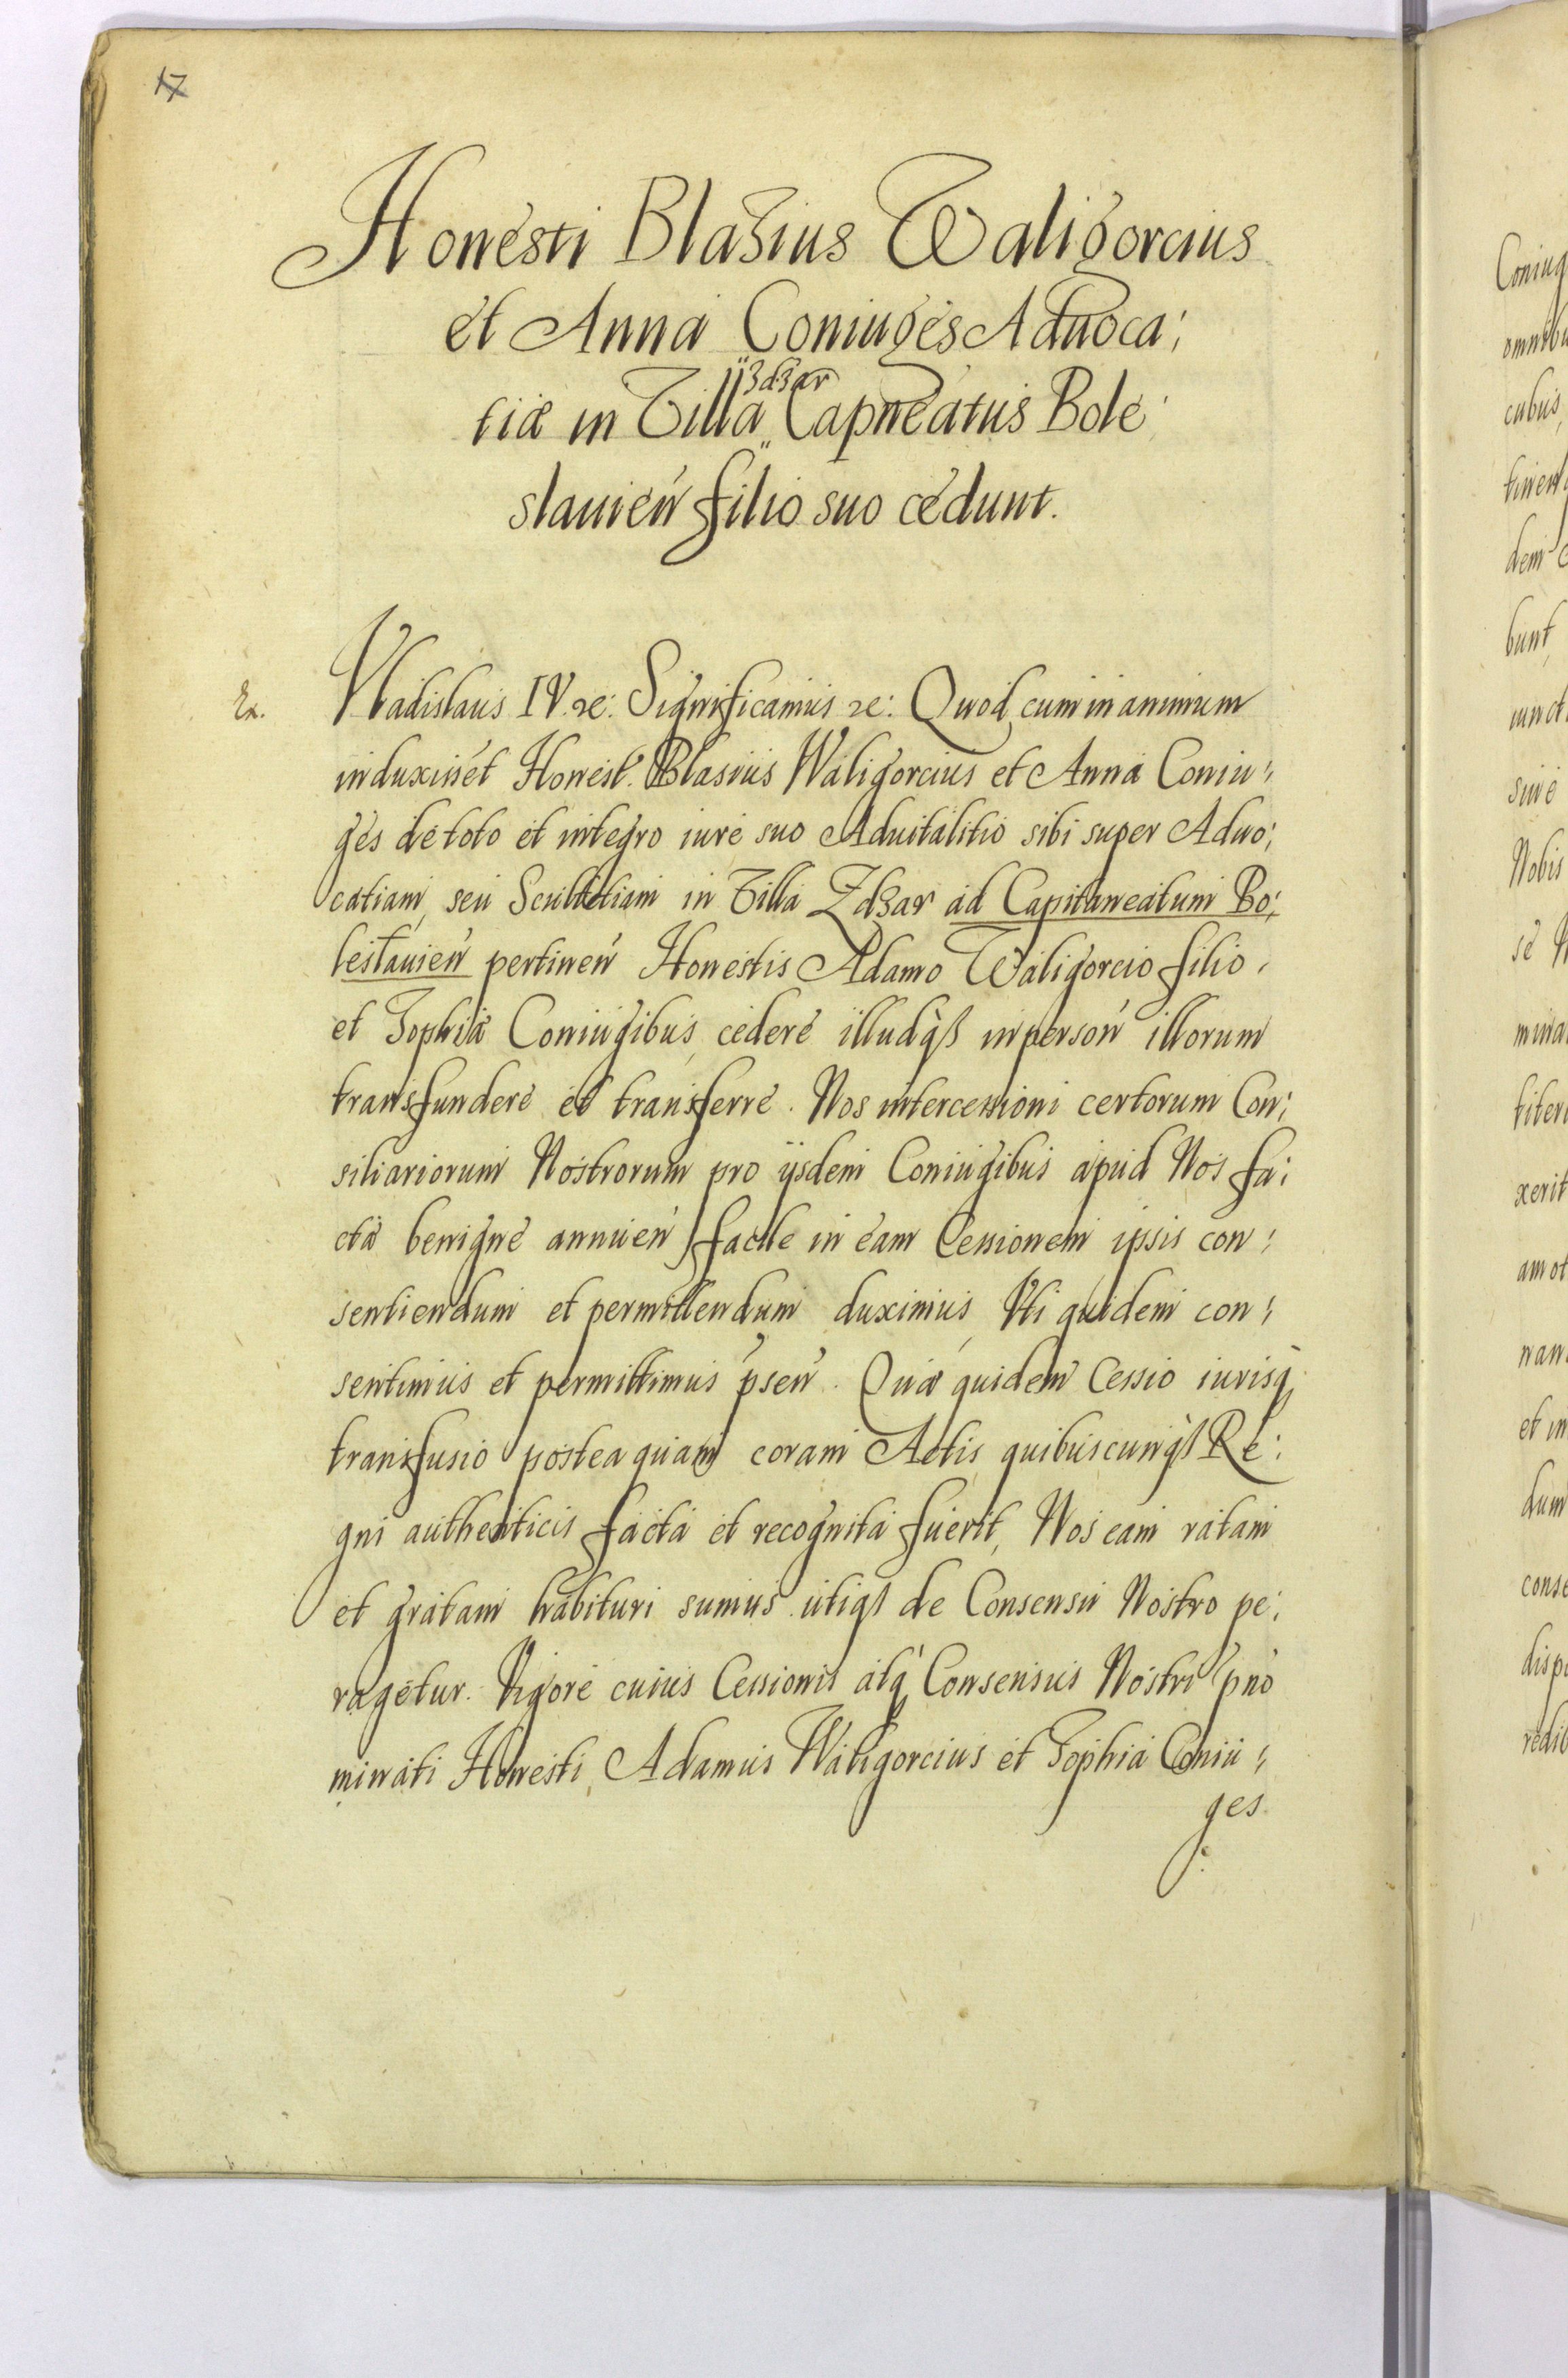 17
Honesti Blasius Waligorcius
et Anna Coniuges Aduoca;
zdzar
tiæ in Villa Capneatus Bole:
slauien filio suo cedunt.
Ex.
Vladislaus IV. &c: Significamus &c: Quod cum in animum
induxisset Honest. Blasius Waligorcius et Anna Coniu:
ges de toto et integro iure suo Aduitalitio sibi super Aduo:
catiam, seu Scultetiam in Villa Zdzar ad Capitaneatum Bo:
leslauien pertinen Honestis Adamo Waligorcio filio,
et Sophiæ Coniugibus, cedere illudq3 in person illorum
transfundere et transferre. Nos intercessioni certorum Con:
siliariorum Nostrorum pro ijsdem Coniugibus apud Nos fa:
ctæ benigne annuen facile in eam Cessionem ipsis con:
sentiendum et permittendum duximus, Vti quidem con:
sentimus et permittimus psen. Quæ quidem Cessio iurisq
transfusio postea quam coram Actis quibuscunq3 Re:
gni authenticis facta et recognita fuerit, Nos eam ratam
et gratam habituri sumus utiq3 de Consensu Nostro pe:
ragetur. Vigore cuius Cessionis atq Consensus Nostri pno
minati Honesti, Adamus Waligorcius et Sophia Coniu:
ges
Coniug
omnibu
cubus,
tinen
dem
bunt,
iunct
siue
Nobis
se
mina
titer
xerit
amot
nan
et in
dum
conse
disp
redit